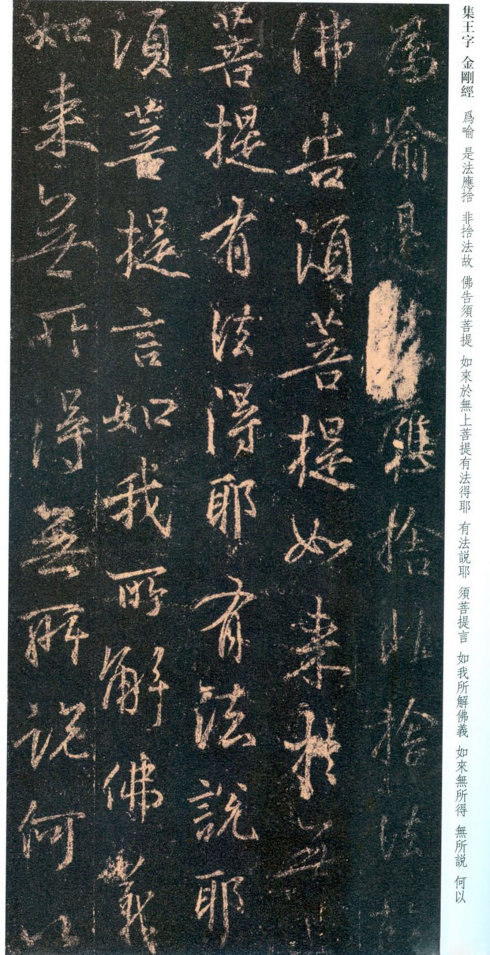 集王字 金剛經 爲喻 是法應捨 非捨法故 佛告須菩提 如來於無上菩提有法得耶 有法説耶 須菩提言 如我所解佛義 如來無所得 無所説 何以
爲喻是應捨非捨法故
佛告須菩提如来於無
菩提有法得耶有法說耶
須菩提言如我所解佛義
如来無所得無所說何以